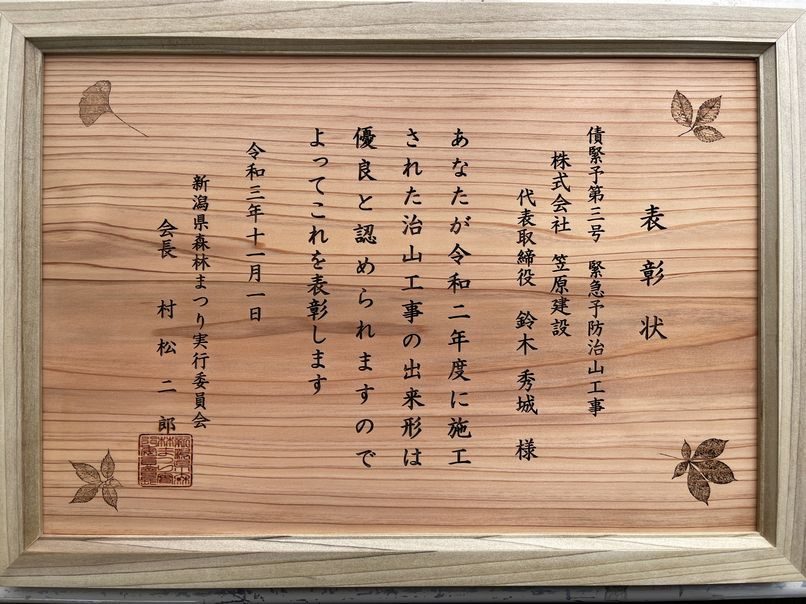 表彰状
債緊予第三号　緊急予防治山工事
株式会社　笠原建設
代表取締役　鈴木　秀城　様
あなたが令和二年度に施工
された治山工事の出来形は
優良と認められますので
よってこれを表彰します
令和三年十一月一日
新潟県森林まつり実行委員会
会長　村松二郎